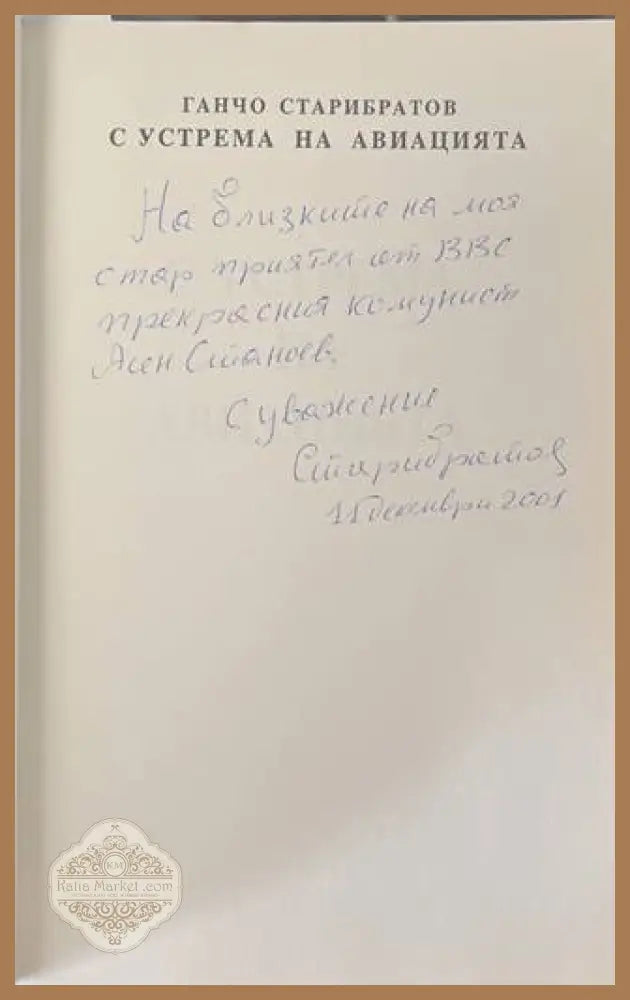 ГАНЧО СТАРИБРАТОВ
С УСТРЕМА НА АВИАЦИЯТА
На близките на моя
стар приятел от ВВС
прекрасния комунист
Асен Станоев.
С уважение
Старибратов
11 декември 2001
KM
Kalia Market .com